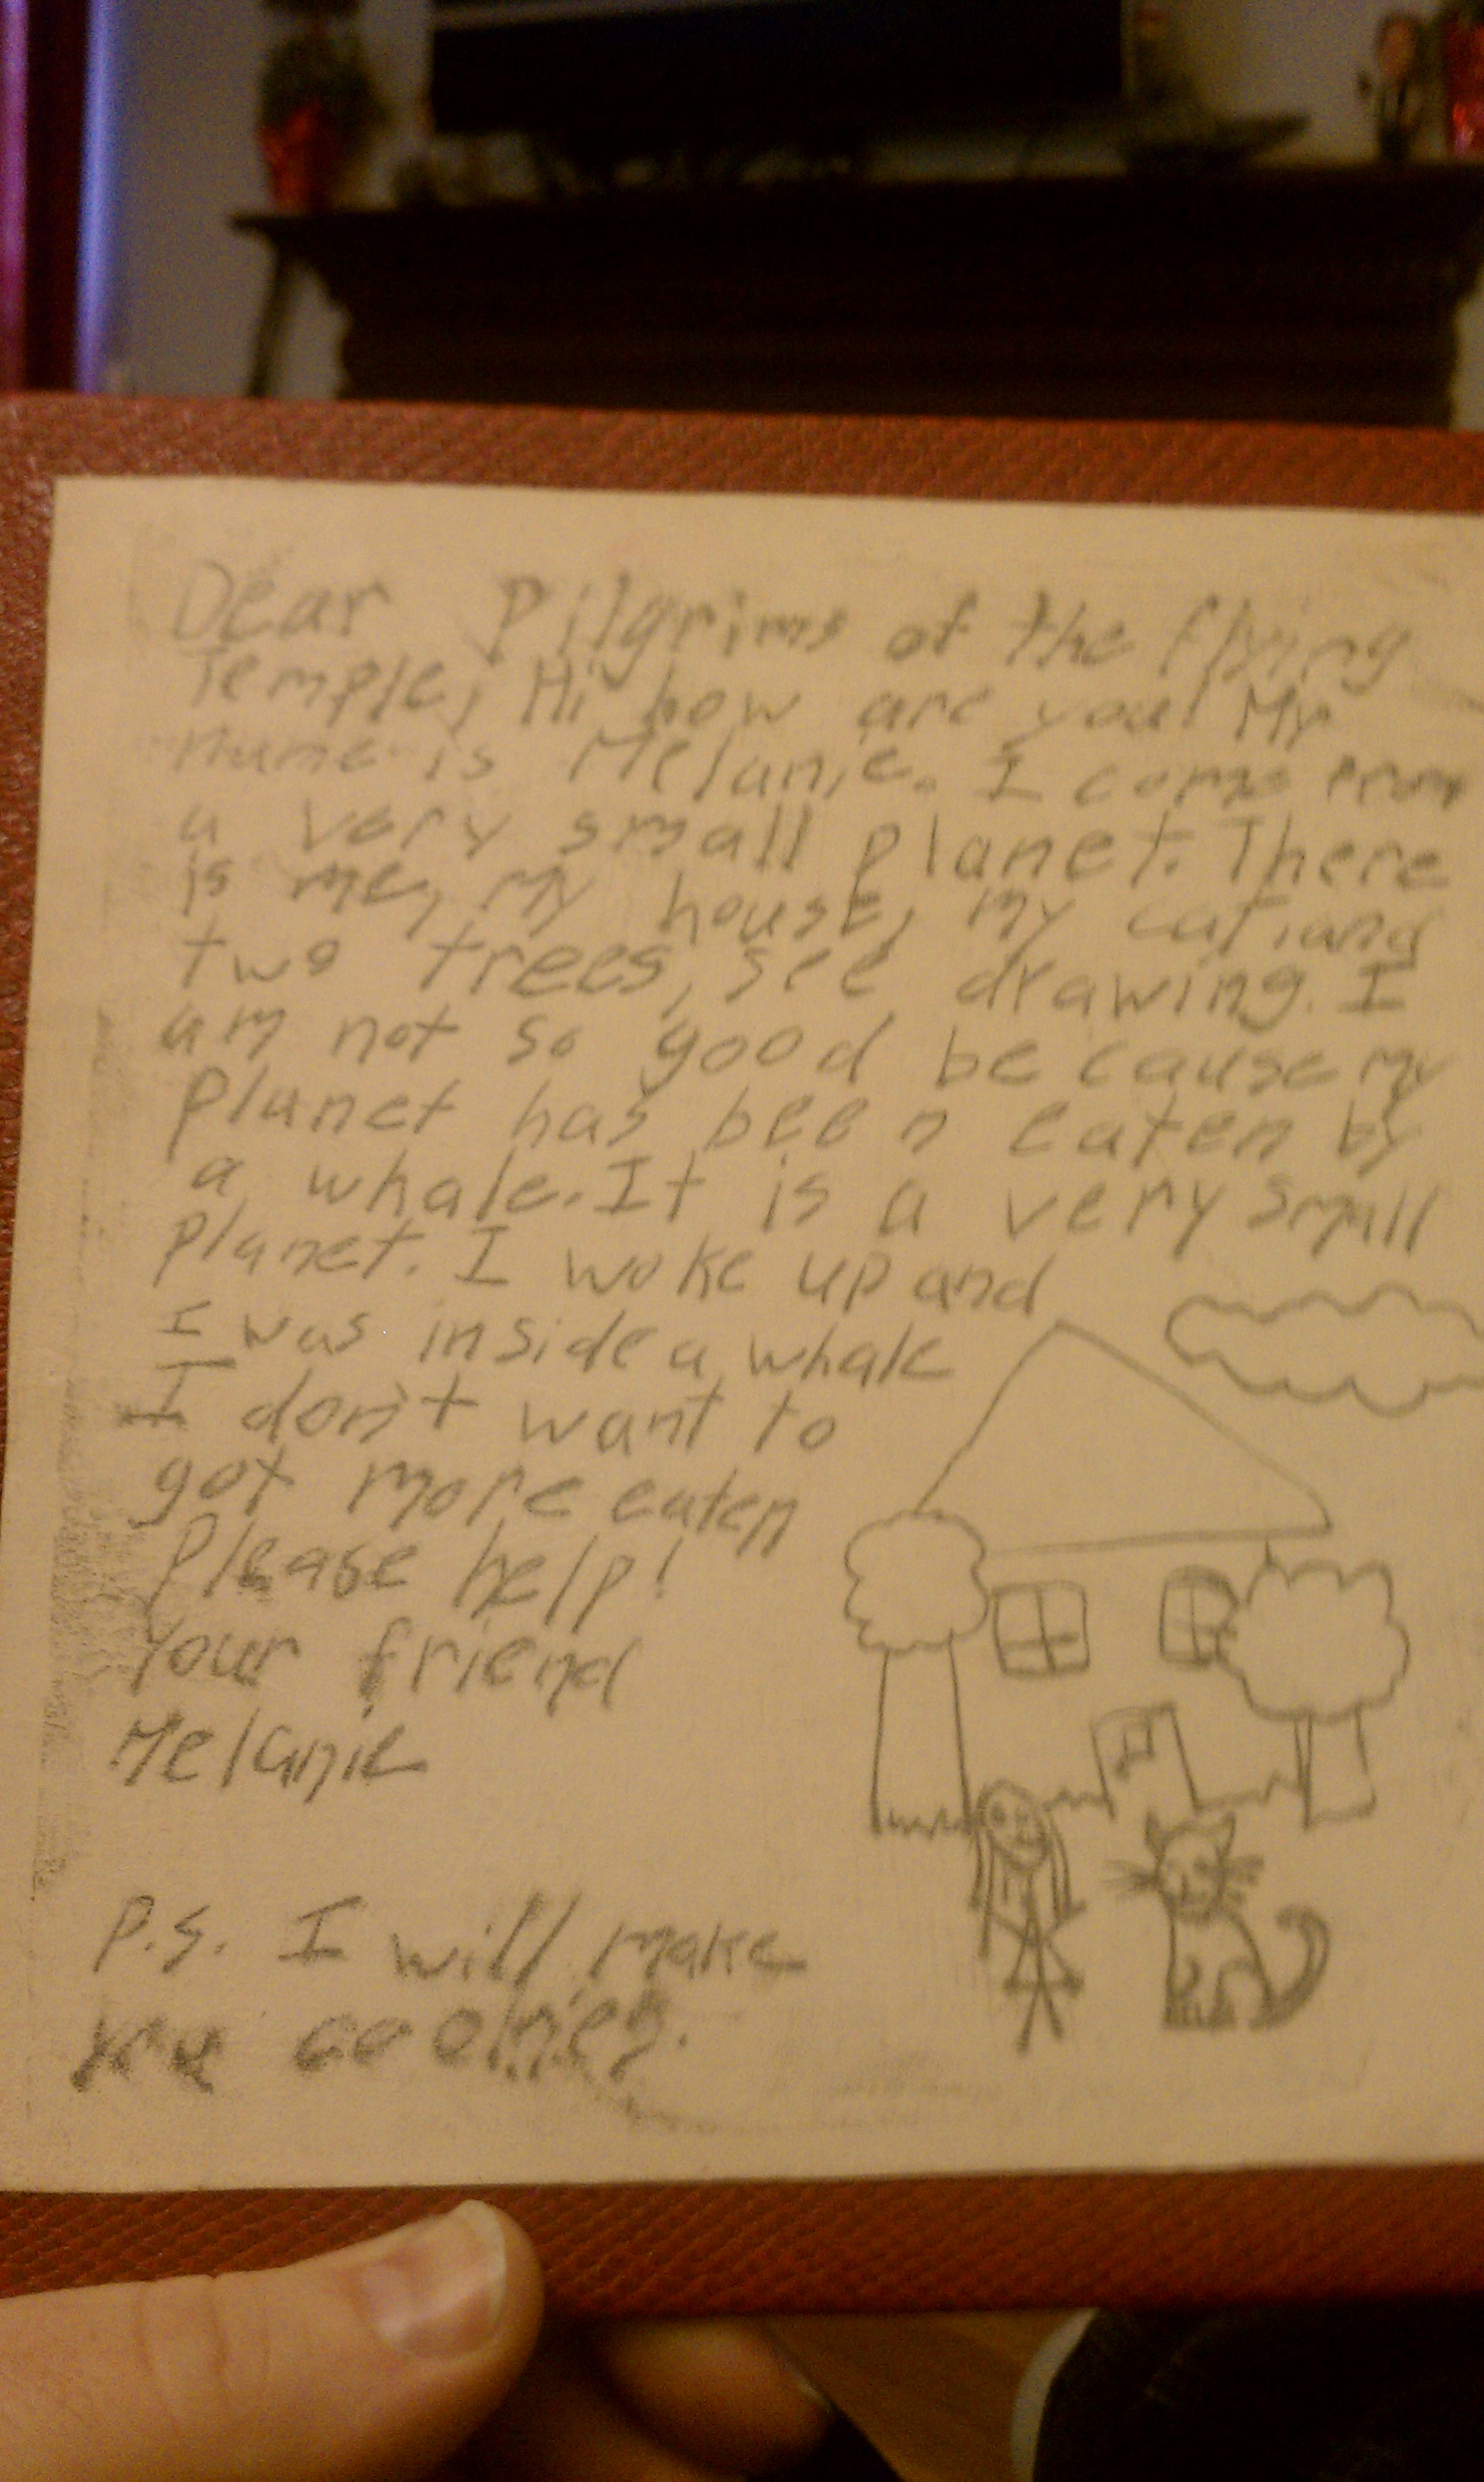 Dear Pilgrims of the flying
Temple, Hi how are you! My
name is Melanie. I come from
a very small planet. There
is me, my house, my cat, and
two trees, see drawing. I
am not so good be cause my
planet has been eaten by
a whale. It is a very small
planet. I woke up and
I was inside a whale
I don't want to
got more eaten
Please help!
Your friend
Melanie
P.S. I will make
you cookies.